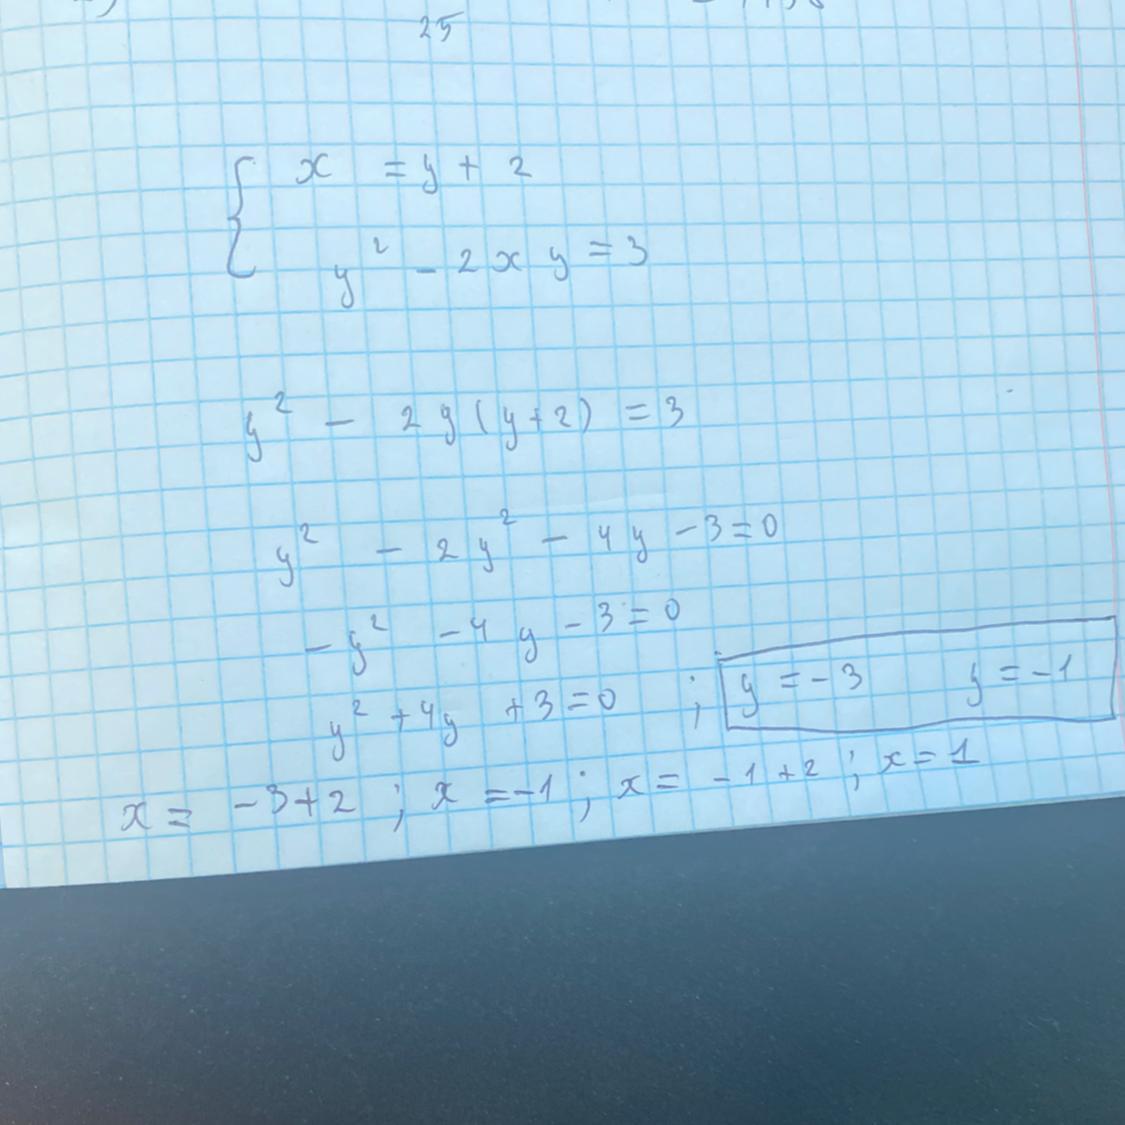 25
{ x = y + 2
y² - 2xy = 3
y² - 2y(y+2) = 3
y² - 2y² - 4y - 3 = 0
-y² - 4y - 3 = 0
y² + 4y + 3 = 0 ; y = -3 y = -1
x = -3+2 ; x = -1 ; x = -1+2 ; x = 1